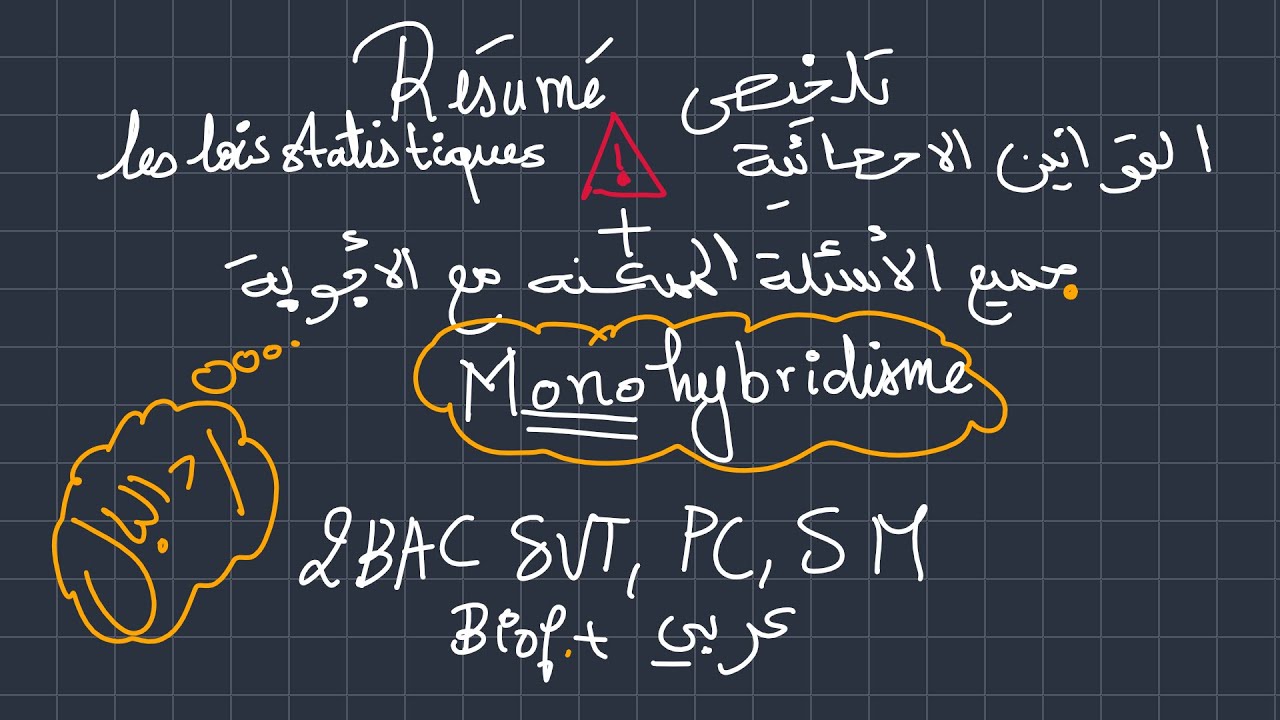 Résumé تلخيص
les lois statistiques ! القوانين الاحصائية
+
جميع الأسئلة الممكنه مع الأجوبة
Monohybridisme
2BAC SVT, PC, SM
Biof + عربي